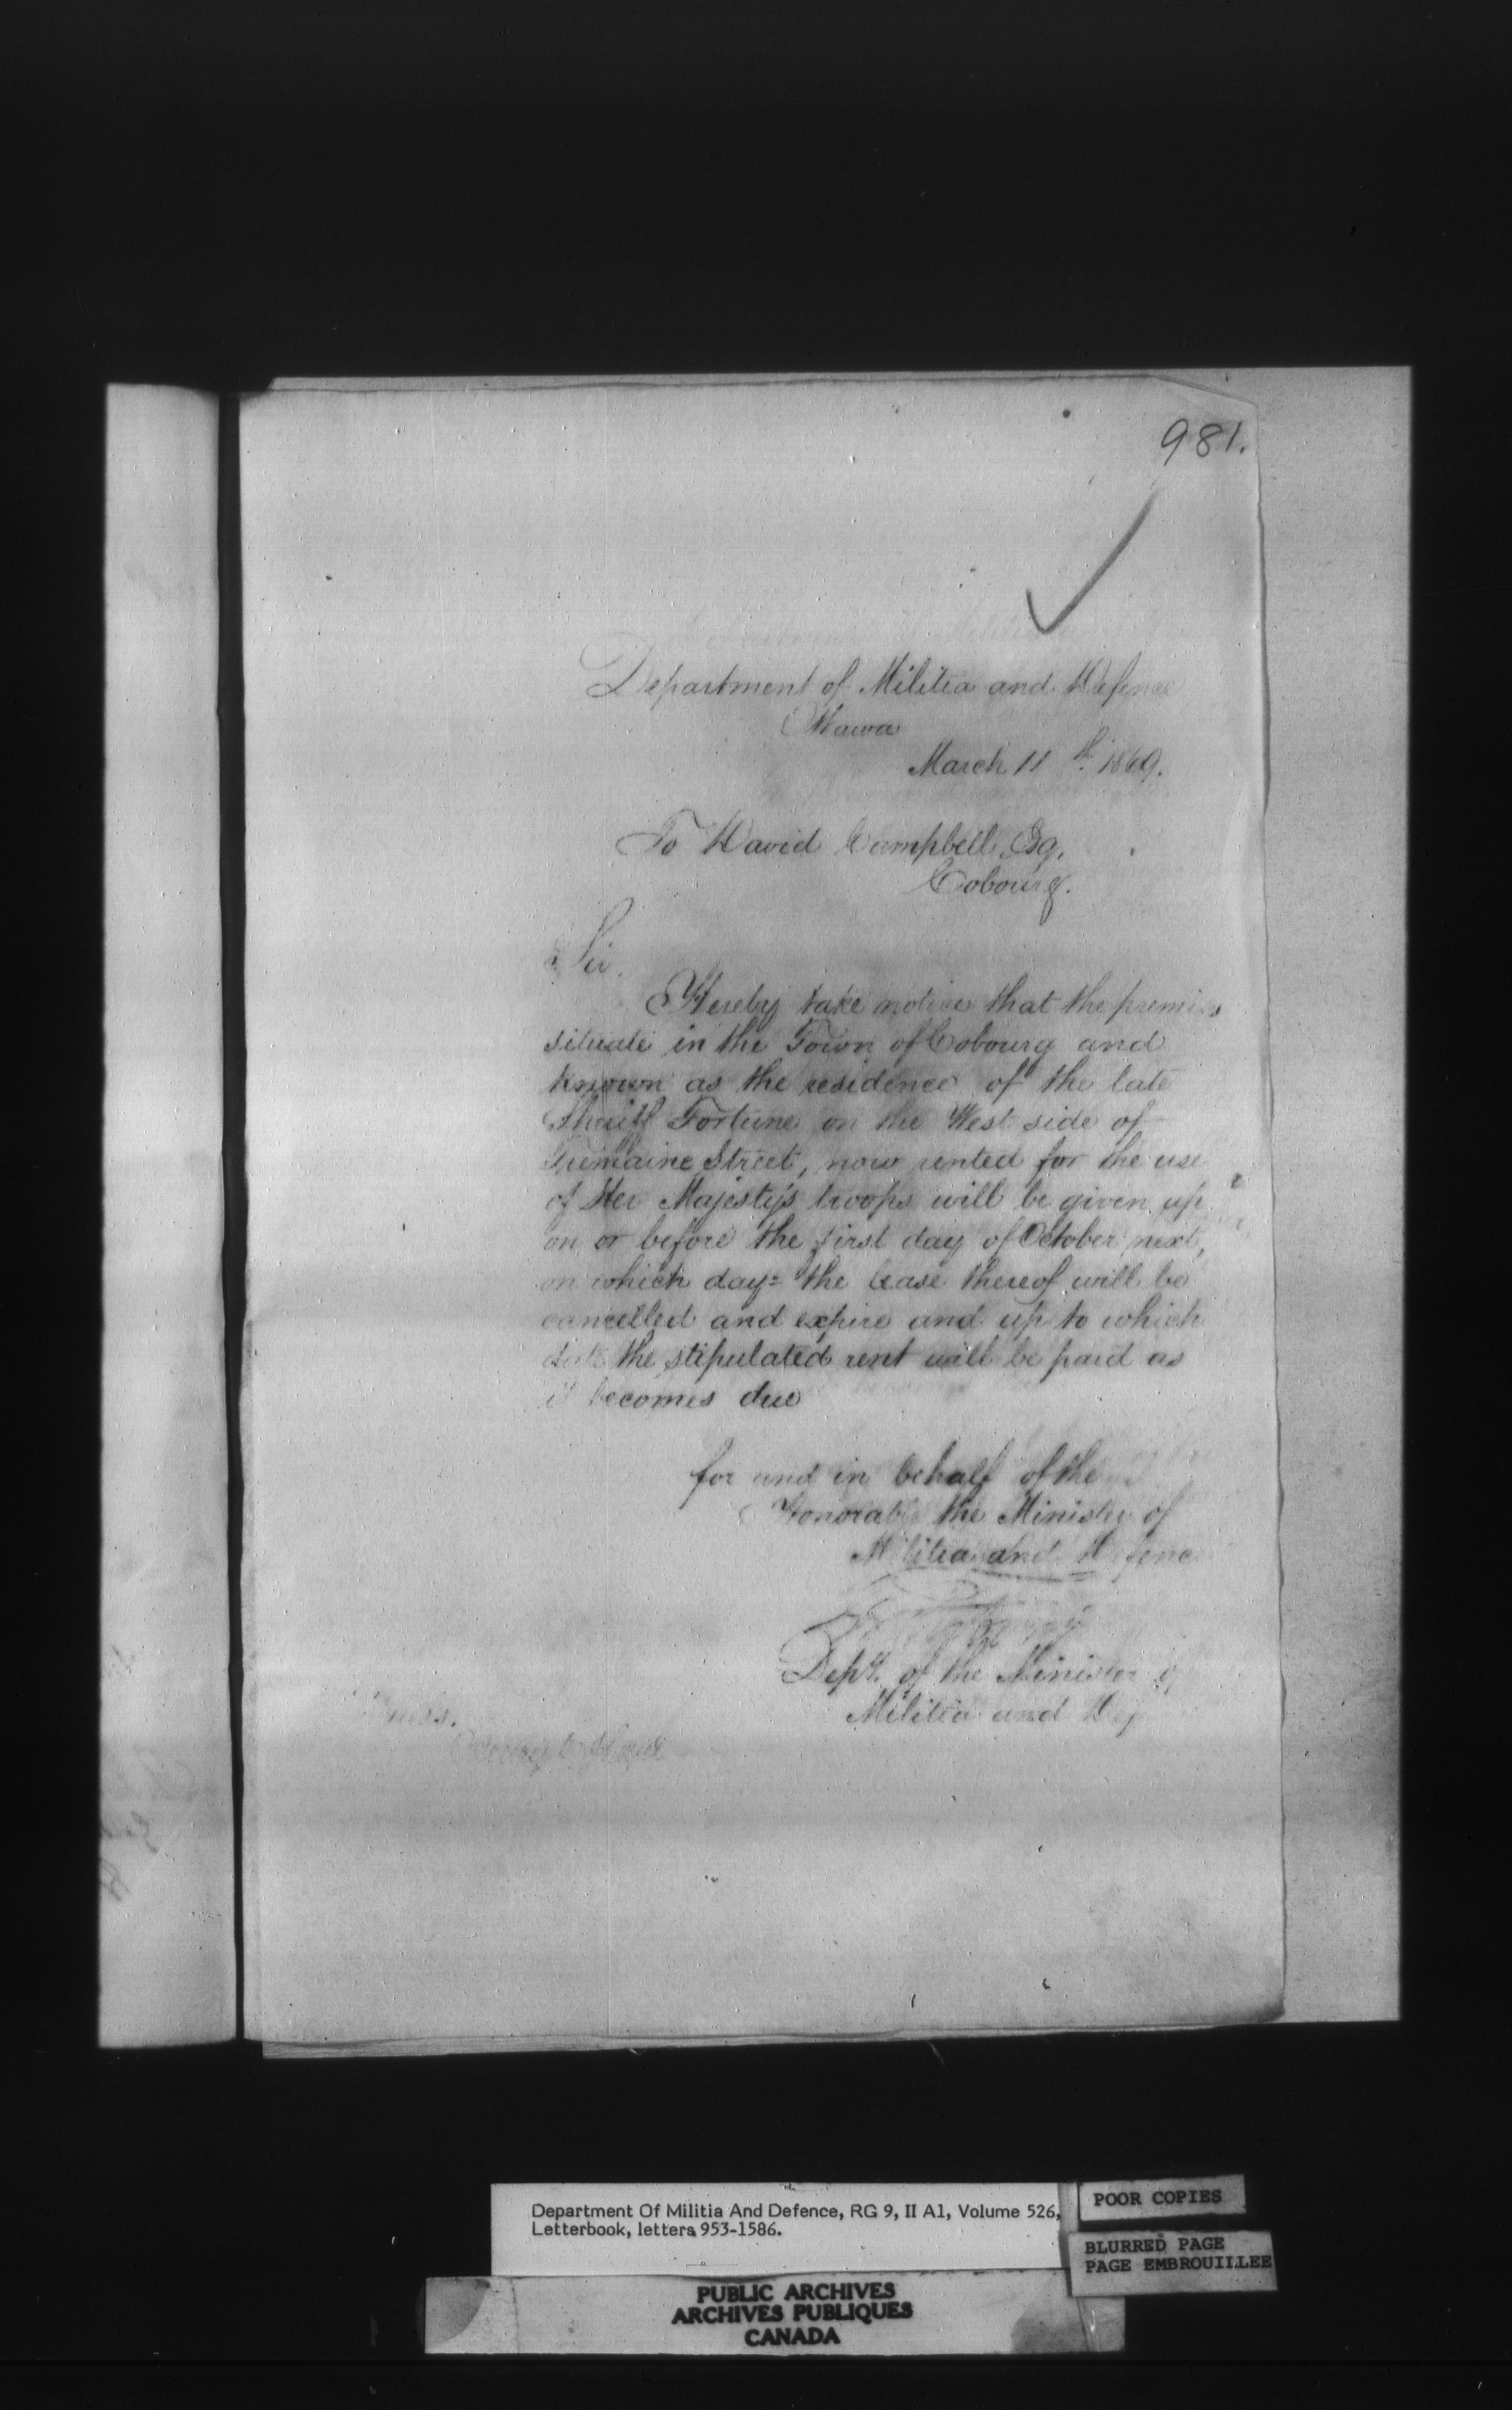 981.
Department of Militia and Defence
Ottawa
March 11th 1869.
To David Campbell Esq.
Cobourg.
Sir.
Hereby take notice that the premises
situate in the Town of Cobourg and
known as the residence of the late
Sheriff Fortune on the West side of
Tremaine Street, now rented for the use
of Her Majesty's troops will be given up
on or before the first day of October next,
on which day the lease thereof will be
cancelled and expire and up to which
date the stipulated rent will be paid as
it becomes due
for and in behalf of the
Honorable the Minister of
Militia and Defence
Depy. of the Minister of
Militia and Def
Witness.
Department Of Militia And Defence, RG 9, II A1, Volume 526,
Letterbook, letters 953-1586.
POOR COPIES
BLURRED PAGE
PAGE EMBROUILLEE
PUBLIC ARCHIVES
ARCHIVES PUBLIQUES
CANADA